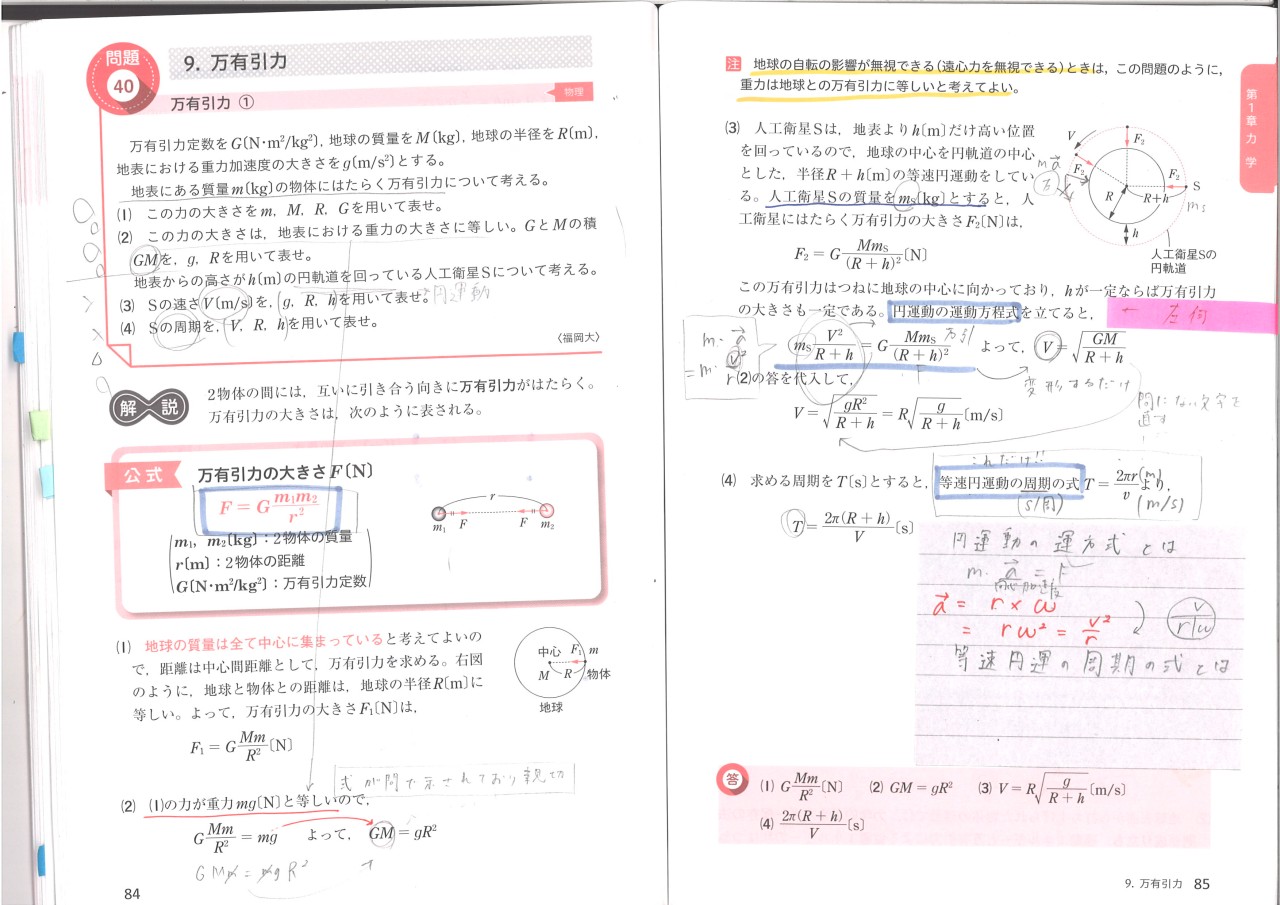 問題
40
9. 万有引力
万有引力 ①
物理
万有引力定数をG〔N・m²/kg²〕, 地球の質量をM〔kg〕, 地球の半径をR〔m〕,
地表における重力加速度の大きさをg〔m/s²〕とする。
地表にある質量m〔kg〕の物体にはたらく万有引力について考える。
(1) この力の大きさをm, M, R, Gを用いて表せ。
(2) この力の大きさは, 地表における重力の大きさに等しい。GとMの積
GMを, g, Rを用いて表せ。
地表からの高さがh〔m〕の円軌道を回っている人工衛星Sについて考える。
(3) Sの速さV〔m/s〕を, g, R, hを用いて表せ。
円運動
(4) Sの周期を, V, R, hを用いて表せ。
〈福岡大〉
解説
2物体の間には, 互いに引き合う向きに万有引力がはたらく。
万有引力の大きさは, 次のように表される。
公式
万有引力の大きさF〔N〕
F = G m₁m₂/r²
m₁, m₂〔kg〕: 2物体の質量
r〔m〕: 2物体の距離
G〔N・m²/kg²〕: 万有引力定数
r
m₁ F F m₂
(1) 地球の質量は全て中心に集まっていると考えてよいの
で, 距離は中心間距離として, 万有引力を求める。右図
のように, 地球と物体との距離は, 地球の半径R〔m〕に
等しい。よって, 万有引力の大きさF₁〔N〕は,
F₁ = G Mm/R² 〔N〕
中心 F₁ m
M R 物体
地球
式が問で示されており親切
(2) (1)の力が重力mg〔N〕と等しいので,
G Mm/R² = mg よって, GM = gR²
GMm = mgR²
84
注 地球の自転の影響が無視できる(遠心力を無視できる)ときは, この問題のように,
重力は地球との万有引力に等しいと考えてよい。
第1章 力学
(3) 人工衛星Sは, 地表よりh〔m〕だけ高い位置
を回っているので, 地球の中心を円軌道の中心
とした, 半径R+h〔m〕の等速円運動をしてい
る。人工衛星Sの質量をmS〔kg〕とすると, 人
工衛星にはたらく万有引力の大きさF₂〔N〕は,
F₂ = G MmS/(R+h)² 〔N〕
V
F₂
m a
F₂
F₂ S
R R+h
ms
h
人工衛星Sの
円軌道
この万有引力はつねに地球の中心に向かっており, hが一定ならば万有引力
の大きさも一定である。円運動の運動方程式を立てると,
mS V²/(R+h) = G MmS/(R+h)² よって, V = √(GM/(R+h))
万引
m・a
= m・v²/r
変形するだけ
問にない文字を
直す
(2)の答を代入して,
V = √(gR²/(R+h)) = R√(g/(R+h)) 〔m/s〕
これだけ!!
(4) 求める周期をT〔s〕とすると, 等速円運動の周期の式 T = 2πr/v より,
(s/周)
(m)
(m/s)
T = 2π(R+h)/V 〔s〕
円運動の運方式とは
m・a = F
向心加速度
a = r × ω
= rω² = v²/r
v
r ω
等速円運の周期の式とは
答 (1) G Mm/R² 〔N〕 (2) GM = gR² (3) V = R√(g/(R+h)) 〔m/s〕
(4) 2π(R+h)/V 〔s〕
9. 万有引力 85